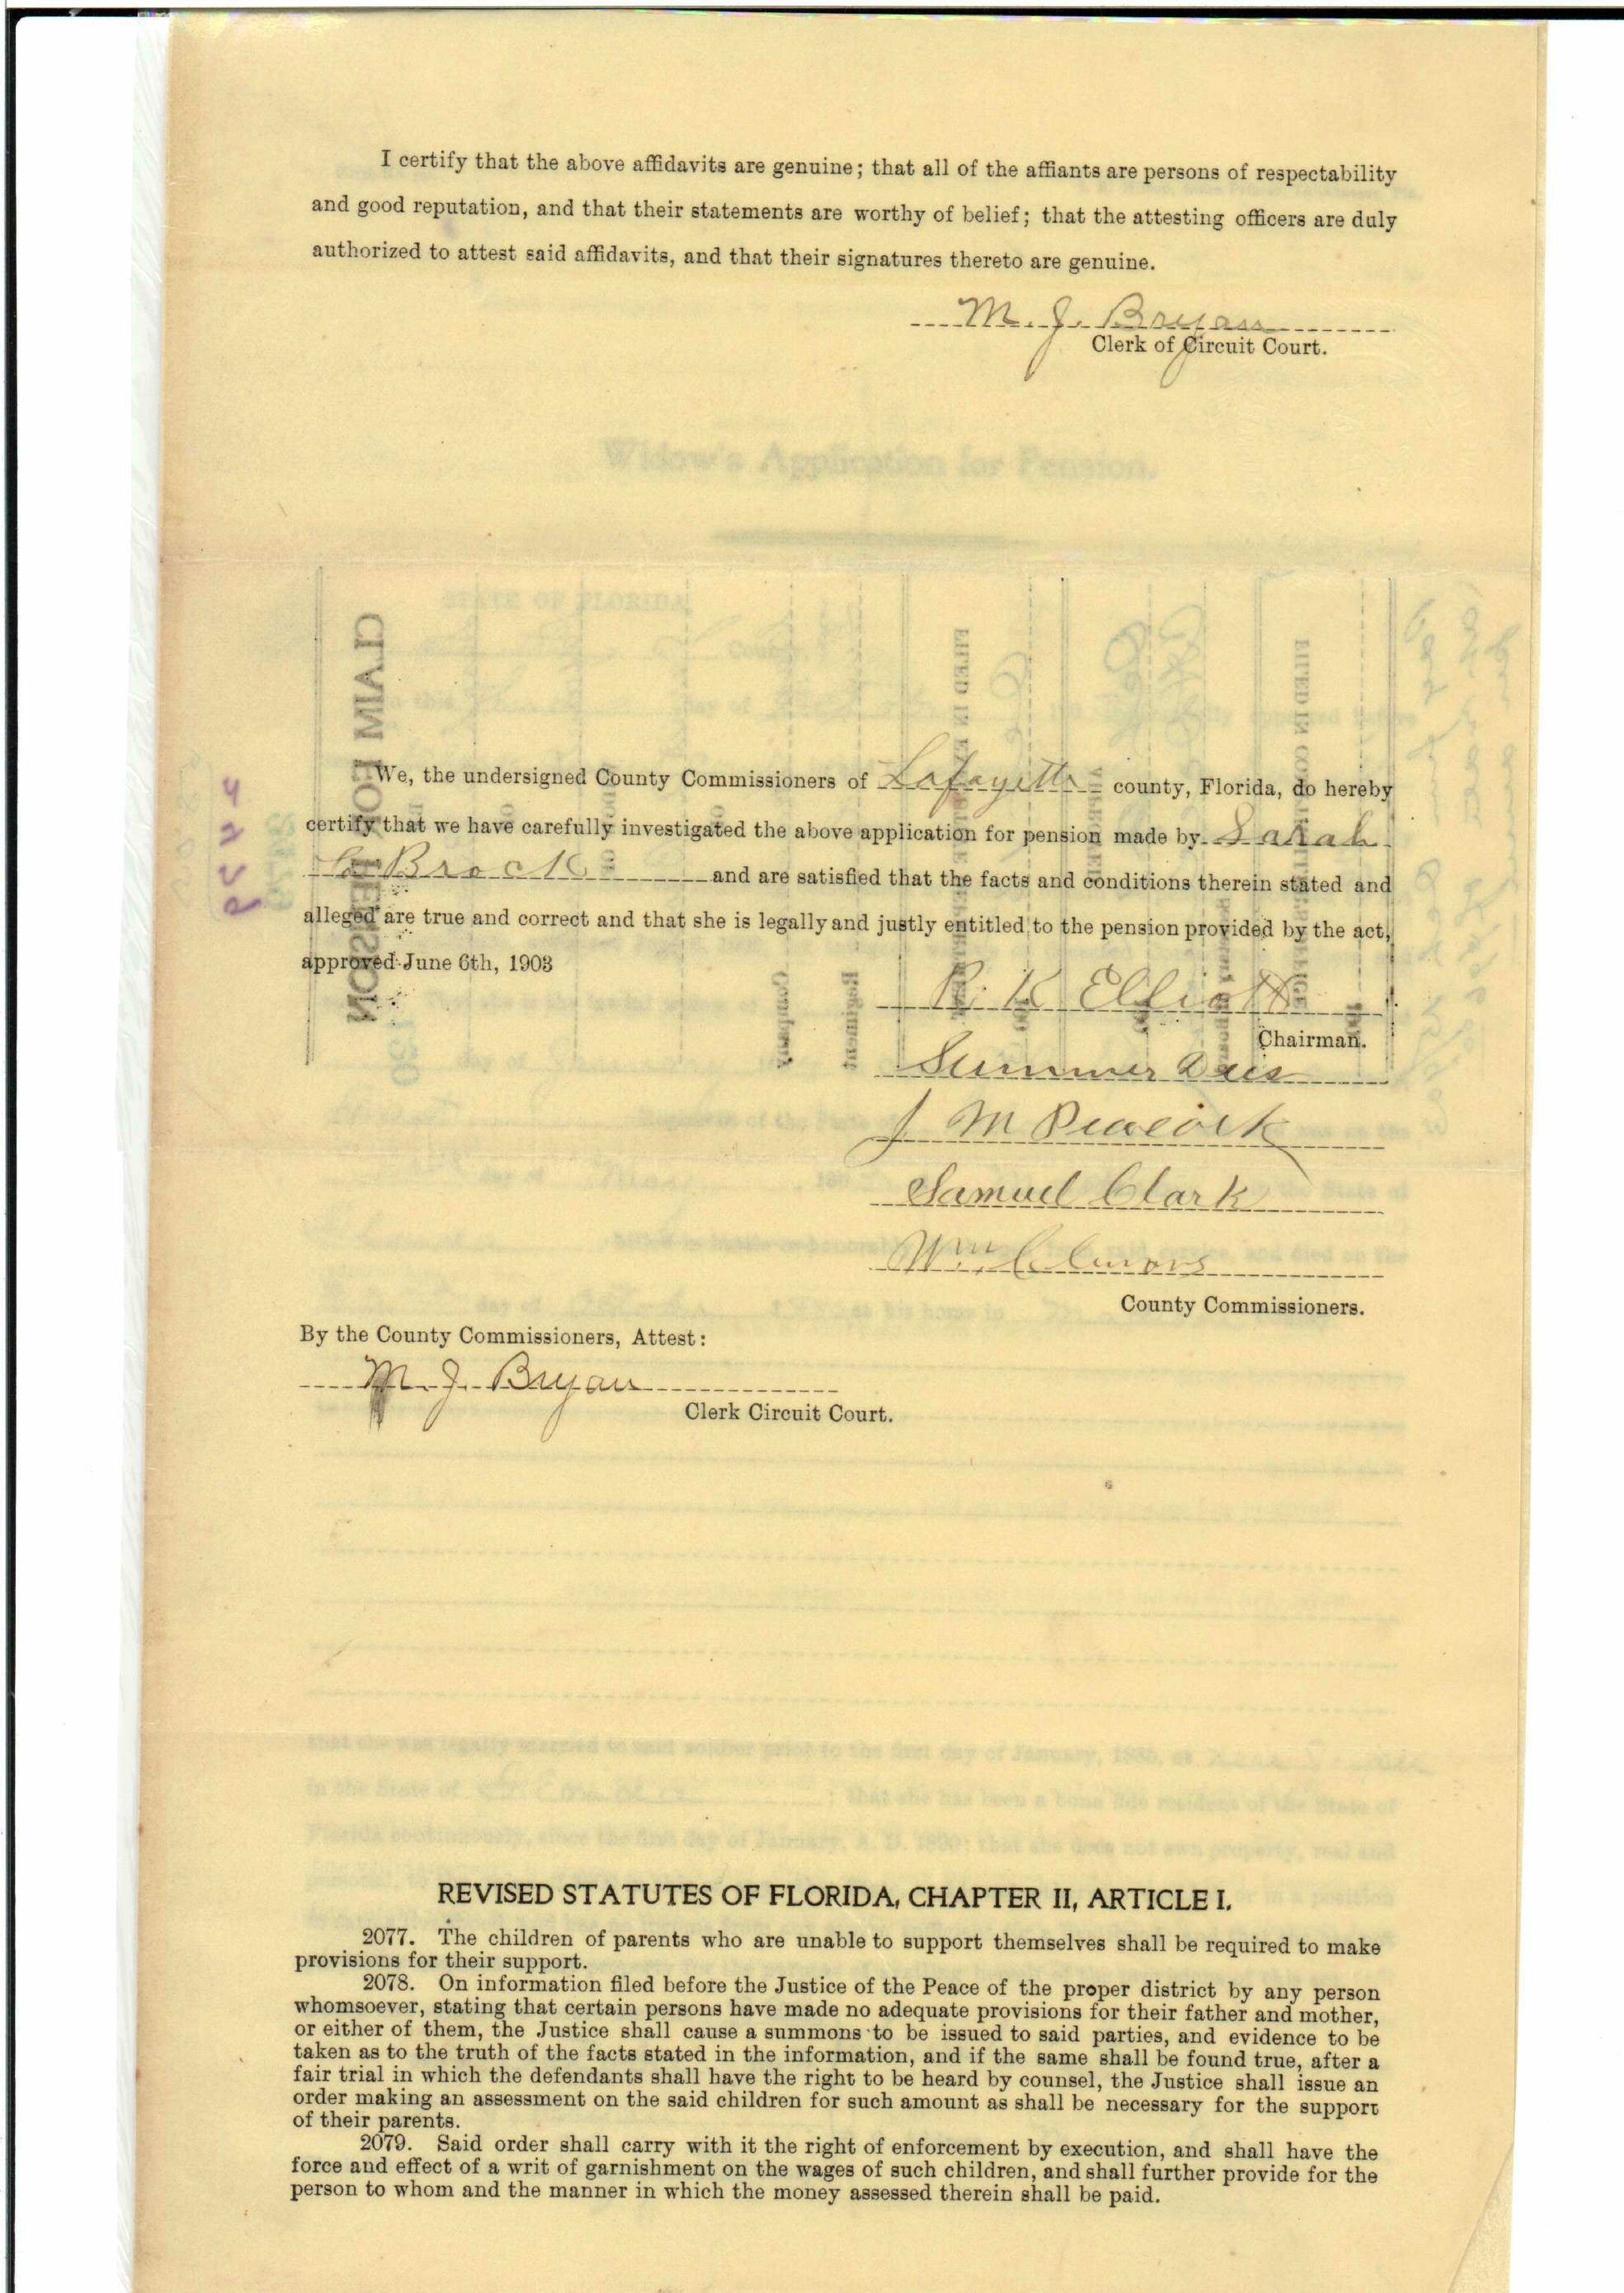 I certify that the above affidavits are genuine; that all of the affiants are persons of respectability
and good reputation, and that their statements are worthy of belief; that the attesting officers are duly
authorized to attest said affidavits, and that their signatures thereto are genuine.
M. J. Bryan
Clerk of Circuit Court.
We, the undersigned County Commissioners of Lafayette county, Florida, do hereby
certify that we have carefully investigated the above application for pension made by Sarah
Brock and are satisfied that the facts and conditions therein stated and
alleged are true and correct and that she is legally and justly entitled to the pension provided by the act,
approved June 6th, 1903
R. K Elliott
Chairman.
Summer
J M Peacock
Samuel Clark
Wm
County Commissioners.
By the County Commissioners, Attest:
M. J. Bryan
Clerk Circuit Court.
REVISED STATUTES OF FLORIDA, CHAPTER II, ARTICLE I.
2077. The children of parents who are unable to support themselves shall be required to make
provisions for their support.
2078. On information filed before the Justice of the Peace of the proper district by any person
whomsoever, stating that certain persons have made no adequate provisions for their father and mother,
or either of them, the Justice shall cause a summons to be issued to said parties, and evidence to be
taken as to the truth of the facts stated in the information, and if the same shall be found true, after a
fair trial in which the defendants shall have the right to be heard by counsel, the Justice shall issue an
order making an assessment on the said children for such amount as shall be necessary for the support
of their parents.
2079. Said order shall carry with it the right of enforcement by execution, and shall have the
force and effect of a writ of garnishment on the wages of such children, and shall further provide for the
person to whom and the manner in which the money assessed therein shall be paid.